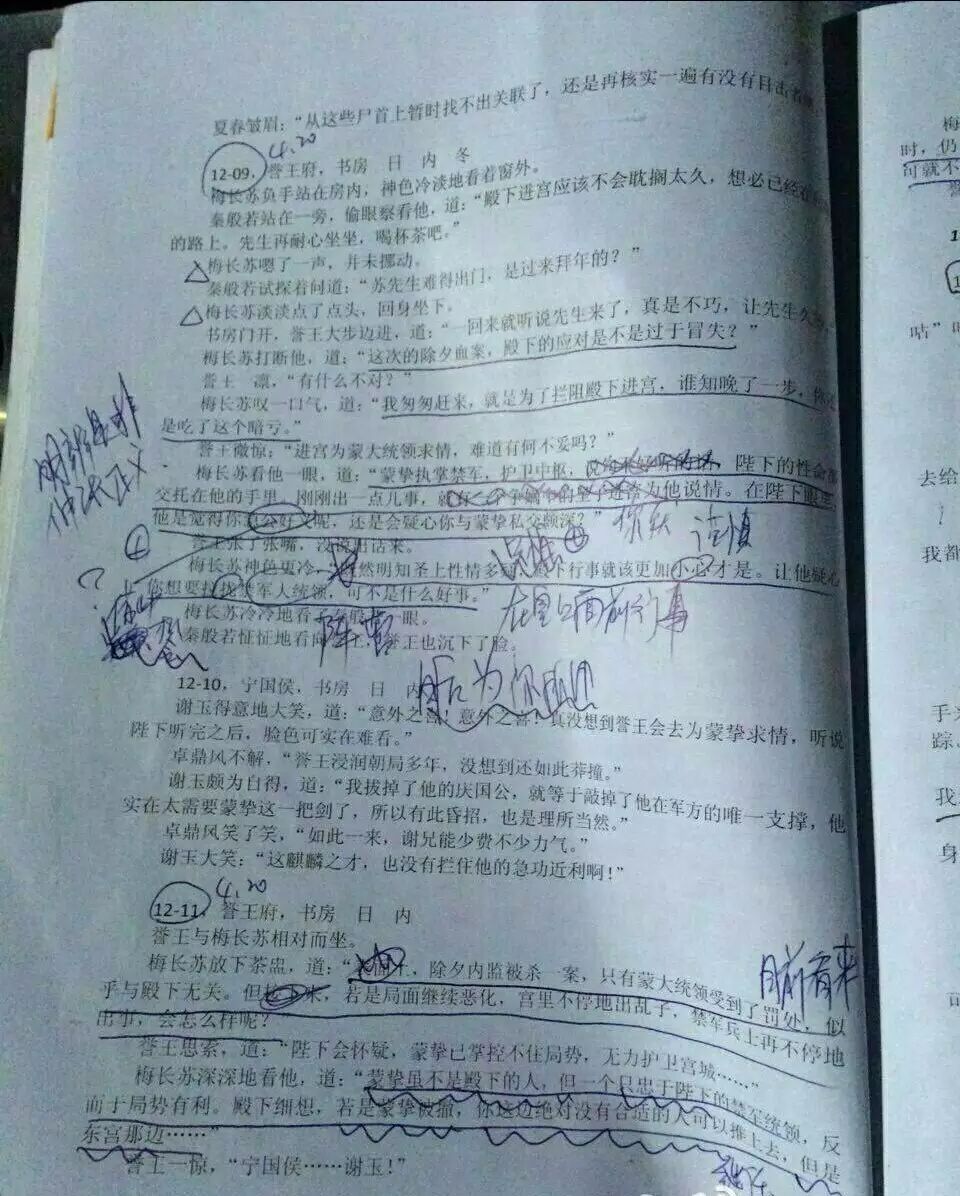 夏春皱眉：“从这些尸首上暂时找不出关联了，还是再核实一遍有没有目击者
4.20
12-09，誉王府，书房 日 内 冬
梅长苏负手站在房内，神色冷淡地看着窗外。
秦般若站在一旁，偷眼察看他，道：“殿下进宫应该不会耽搁太久，想必已经在
的路上。先生再耐心坐坐，喝杯茶吧。”
梅长苏嗯了一声，并未挪动。
秦般若试探着问道：“苏先生难得出门，是过来拜年的？”
梅长苏淡淡点了点头，回身坐下。
书房门开，誉王大步迈进，道：“一回来就听说先生来了，真是不巧，让先生久
梅长苏打断他，道：“这次的除夕血案，殿下的应对是不是过于冒失？”
誉王 凛，“有什么不对？”
梅长苏叹一口气，道：“我匆匆赶来，就是为了拦阻殿下进宫，谁知晚了一步，你还
是吃了这个暗亏。”
誉王微惊：“进宫为蒙大统领求情，难道有何不妥吗？”
梅长苏看他一眼，道：“蒙挚执掌禁军，护卫中枢， 陛下的性命都
交托在他的手里。刚刚出一点儿事，就 为他说情。在陛下眼里
他是觉得你 呢，还是会疑心你与蒙挚私交颇深？”
誉王张了张嘴，没说出话来。
谨慎
梅长苏神色更冷， 然明知圣上性情多 下行事就该更加小心才是。让他疑心
你想要拉拢禁军大统领，可不是什么好事。”
梅长苏冷冷地看 眼。
秦般若怔怔地看向 誉王也沉下了脸。
12-10，宁国侯，书房 日 内
谢玉得意地大笑，道：“意外之喜！意外之喜！真没想到誉王会去为蒙挚求情，听说
陛下听完之后，脸色可实在难看。”
卓鼎风不解，“誉王浸润朝局多年，没想到还如此莽撞。”
谢玉颇为自得，道：“我拔掉了他的庆国公，就等于敲掉了他在军方的唯一支撑，他
实在太需要蒙挚这一把剑了，所以有此昏招，也是理所当然。”
卓鼎风笑了笑，“如此一来，谢兄能少费不少力气。”
谢玉大笑：“这麒麟之才，也没有拦住他的急功近利啊！”
4.20
12-11，誉王府，书房 日 内
誉王与梅长苏相对而坐。
目前看来
梅长苏放下茶盅，道：“ 除夕内监被杀一案，只有蒙大统领受到了罚处，似
乎与殿下无关。但 若是局面继续恶化，宫里不停地出乱子，禁军兵士再不停地
出事，会怎么样呢？”
誉王思索，道：“陛下会怀疑，蒙挚已掌控不住局势，无力护卫宫城……”
梅长苏深深地看他，道：“蒙挚虽不是殿下的人，但一个只忠于陛下的禁军统领，反
而于局势有利。殿下细想，若是蒙挚被撤，你这边绝对没有合适的人可以推上去，但是
东宫那边……”
誉王一惊，“宁国侯……谢玉！”
梅
时，仍
可就不
咕”
去给
我都
手
踪
我
身